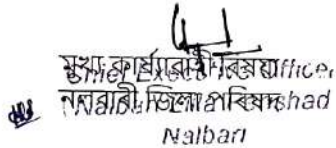 মুখ্য কাৰ্যবাহী বিষয়া
Chief Executive Officer
নলবাৰী জিলা পৰিষদ
Nalbari Zilla Parishad
Nalbari